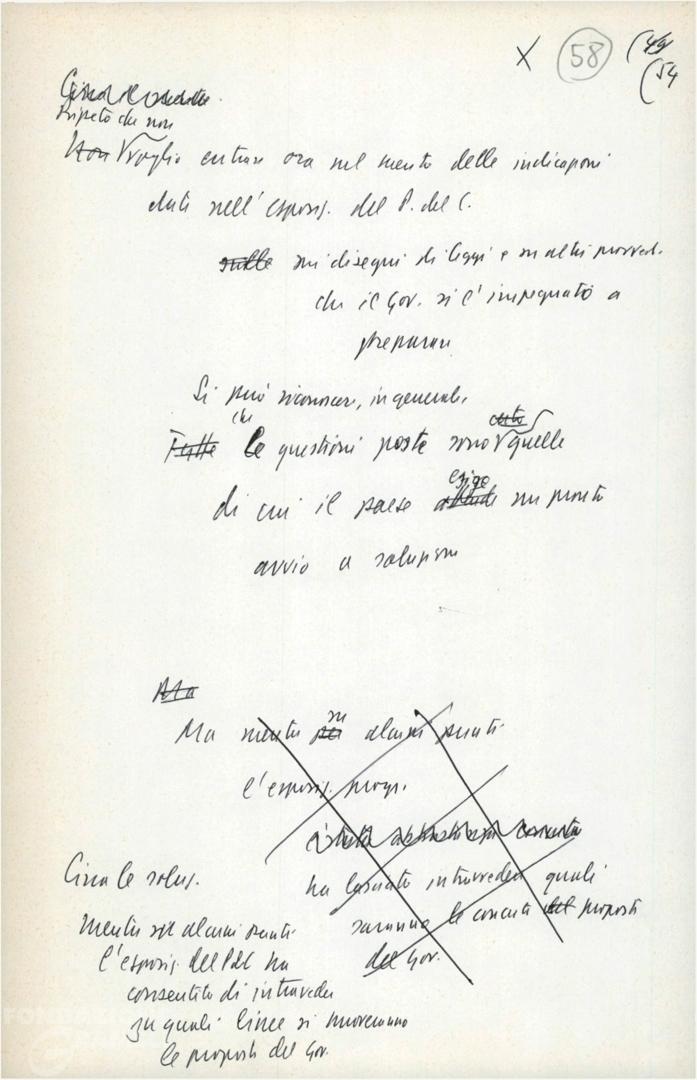 X 58 (49
(54
Ripeto che non
Non voglio entrare ora nel merito delle indicazioni
date nell'esposiz. del P. del C.
sulle sui disegni di leggi e su altri provved.
che il Gov. si è impegnato a
preparare
Si può riconoscere, in generale,
che certo
Tutte le questioni poste sono quelle
esige
di cui il paese un pronto
avvio a soluzione
Ma
su
Ma mentre per alcuni punti
l'esposiz. progr.
ha lasciato intravedere quali
saranno le concrete del proposte
del Gov.
Circa le soluz.
mentre su alcuni punti
l'esposiz. del PdC ha
consentito di intravedere
su quali linee si muoveranno
le proposte del Gov.